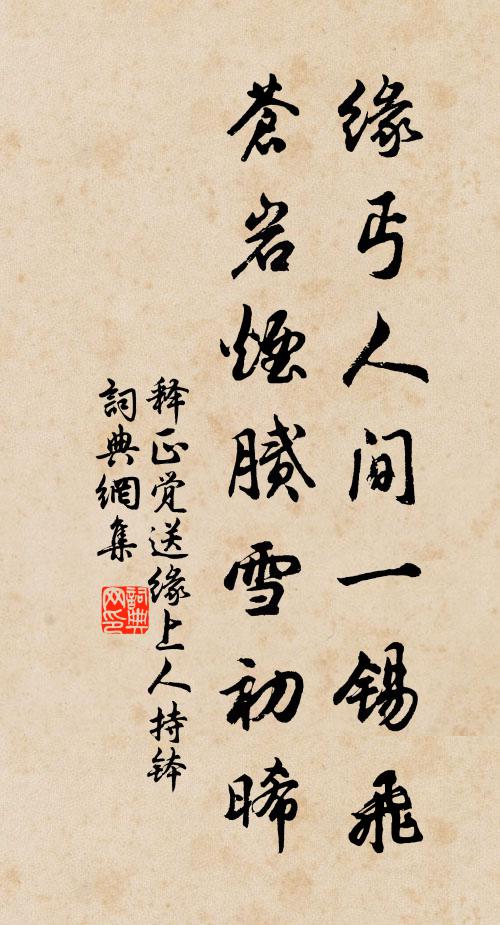 缘丐人间一锡飛
蒼岩煙臘雪初晞
释正觉送缘上人持钵
詞典網集
詞典网印